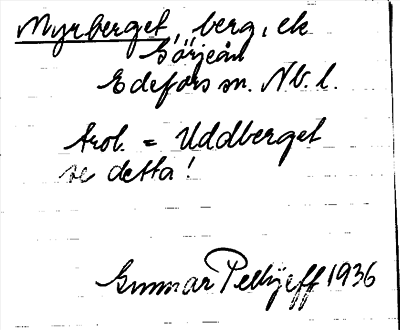 Myrberget, berg, ek
Görjeån
Edefors sn. Nb. l.
Trol. = Uddberget
se detta!
Gunnar Pellijeff 1936